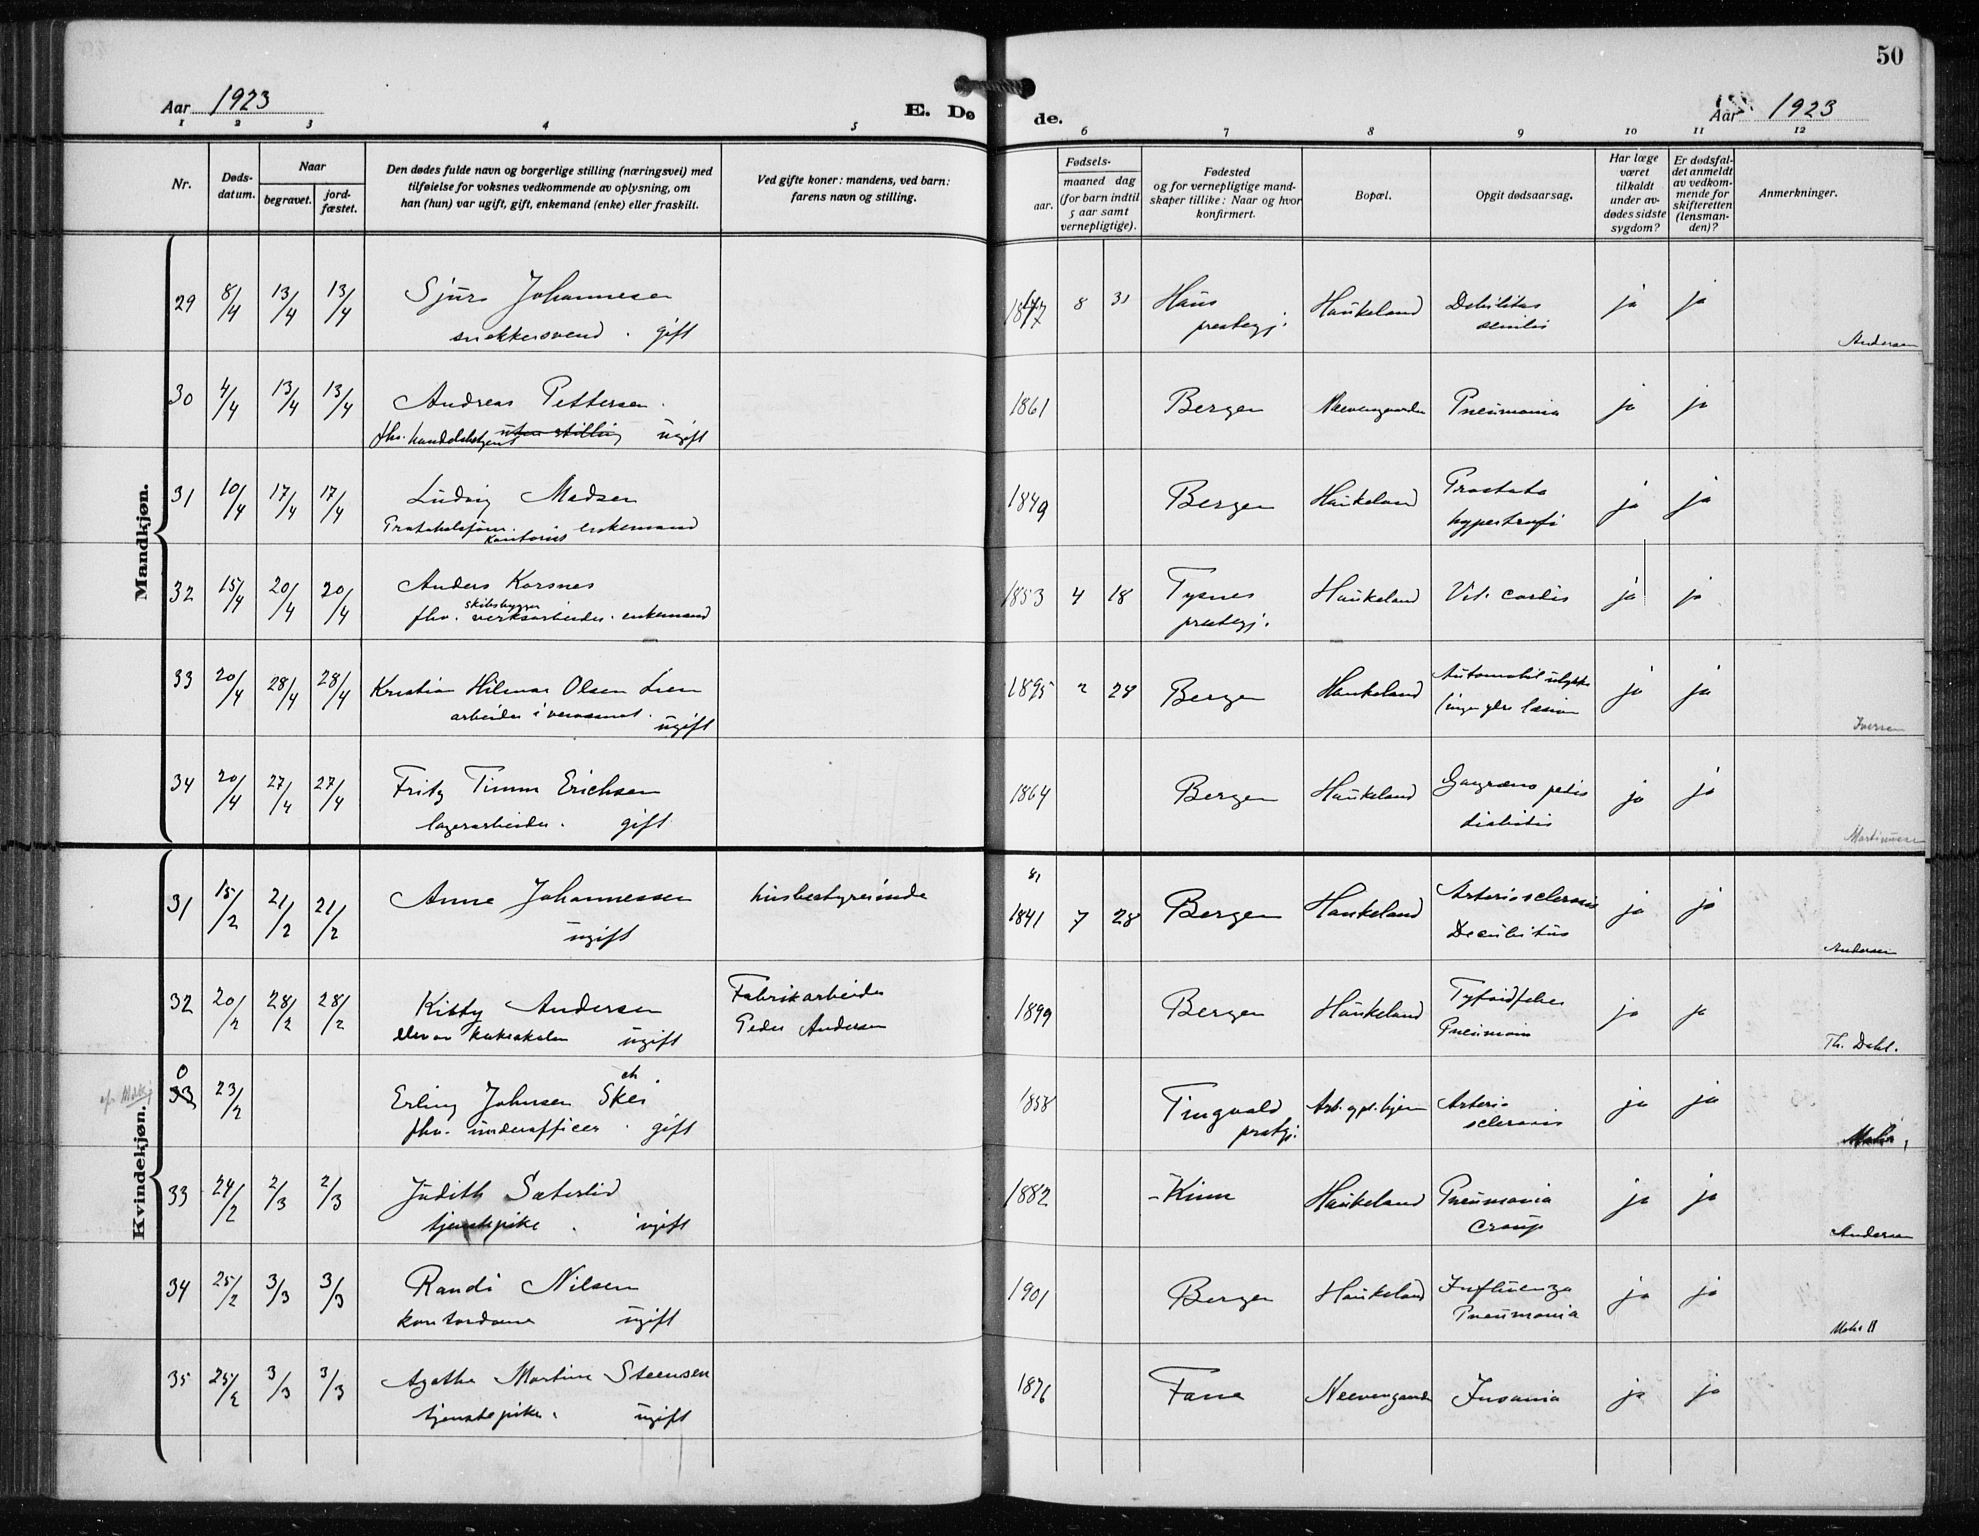 50
Aar 1923
E. Dø
de.
Aar 1923
1 2 3 4 5 6 7 8 9 10 11 12
Nr.
Døds-
datum.
Naar
begravet.
jord-
fæstet.
Den dødes fulde navn og borgerlige stilling (næringsvei) med
tilføielse for voksnes vedkommende av oplysning, om
han (hun) var ugift, gift, enkemand (enke) eller fraskilt.
Ved gifte koner: mandens, ved barn:
farens navn og stilling.
Fødsels-
aar.
maaned dag
(for barn indtil
5 aar samt
vernepligtige).
Fødested
og for vernepligtige mand-
skaper tillike: Naar og hvor
konfirmert.
Bopæl.
Opgit dødsaarsag.
Har læge
været
tilkaldt
under av-
dødes sidste
sygdom?
Er dødsfal-
det anmeldt
av vedkom-
mende for
skifteretten
(lensman-
den)?
Anmerkninger.
Mandkjøn.
29 8/4 13/4 13/4 Sjurs Johannesen 8 31 Haus Haukeland Debilitas ja ja
snekkersvend . gift prestegj. senilis Andersen
30 4/4 13/4 13/4 Andreas Pettersen. 1861 Bergen Neevengaarden Pneumonia ja ja
fhv. handelsbetjent uten stilling ugift
31 10/4 17/4 17/4 Ludvig Madsen 1849 Bergen Haukeland Prostata ja ja
enkemand hypertrofi
32 15/4 20/4 20/4 Anders Korsnes 1853 4 18 Tysnes Haukeland Vit. cordis ja ja
skibsbygger
fhv. verksarbeider. enkemand prestegj.
33 20/4 28/4 28/4 Kristian Hilmar Olsen Lien 1895 2 24 Bergen Haukeland Automobilulykke ja ja
arbeider i ugift Iversen
34 20/4 27/4 27/4 Fritz Timm Erichsen 1864 Bergen Haukeland Gangræna pedis ja ja
lagerarbeider. gift diabetis Martinussen
Kvindekjøn.
31 15/2 21/2 21/2 Anne Johannessen husbestyrerinde 1841 7 28 Bergen Haukeland Arteriosclerosis ja ja
ugift Decubitus Andersen
32 20/2 28/2 28/2 Kitty Andersen Fabrikarbeider 1899 Bergen Haukeland Tyfoidfeber ja ja
elev av kokeskolen ugift Peder Andersen Pneumoni Th. Dahl.
0
33 23/2 Erling Johnsen Skei 1858 Tingvold Arterio ja ja
fhv. underofficer . gift prestgj. sclerosis
33 24/2 2/3 2/3 Judith Sæterlid 1882 -Kinn Haukeland Pneumonia ja ja
tjenstepike . ugift Croup Andersen
34 25/2 3/3 3/3 Randi Nilsen 1901 Bergen Haukeland Influenza ja ja
kontordame ugift Pneumonia
35 25/2 3/3 3/3 Agathe Martine Steensen 1876 Fane Neevengaarden Insania ja ja
tjenstepike. ugift